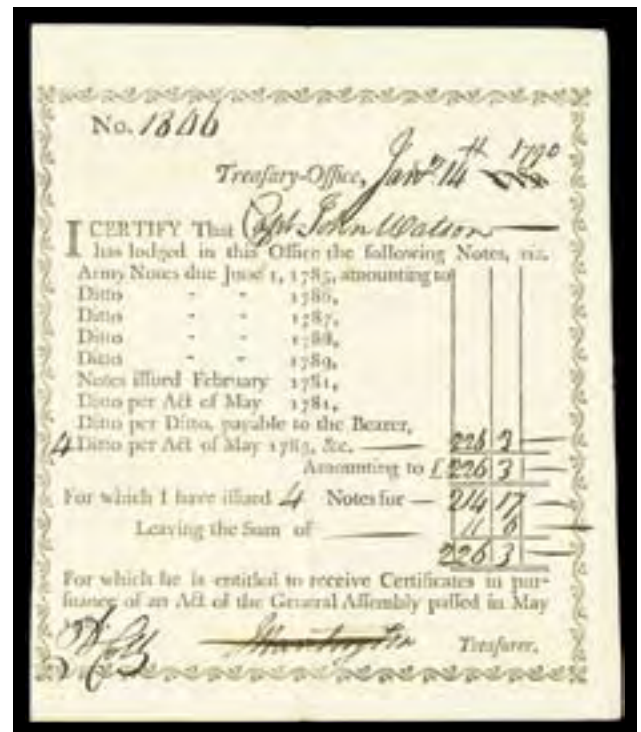 No. 1806
Treaſury-Office, Janʸ 14th 1790
I CERTIFY That Capt John Watson
has lodged in this Office the following Notes, viz.
Army Notes due June 1, 1785, amounting to
Ditto - - 1786,
Ditto - - 1787,
Ditto - - 1788,
Ditto - - 1789,
Notes iſſued February 1781,
Ditto per Act of May 1781,
Ditto per Ditto, payable to the Bearer,
4 Ditto per Act of May 1783, &c. — 226 3 —
Amounting to £ 226 3 —
For which I have iſſued 4 Notes for — 214 17 —
Leaving the Sum of — 11 6 —
226 3 —
For which he is entitled to receive Certificates in pur-
ſuance of an Act of the General Aſſembly paſſed in May
Huntington Treaſurer.